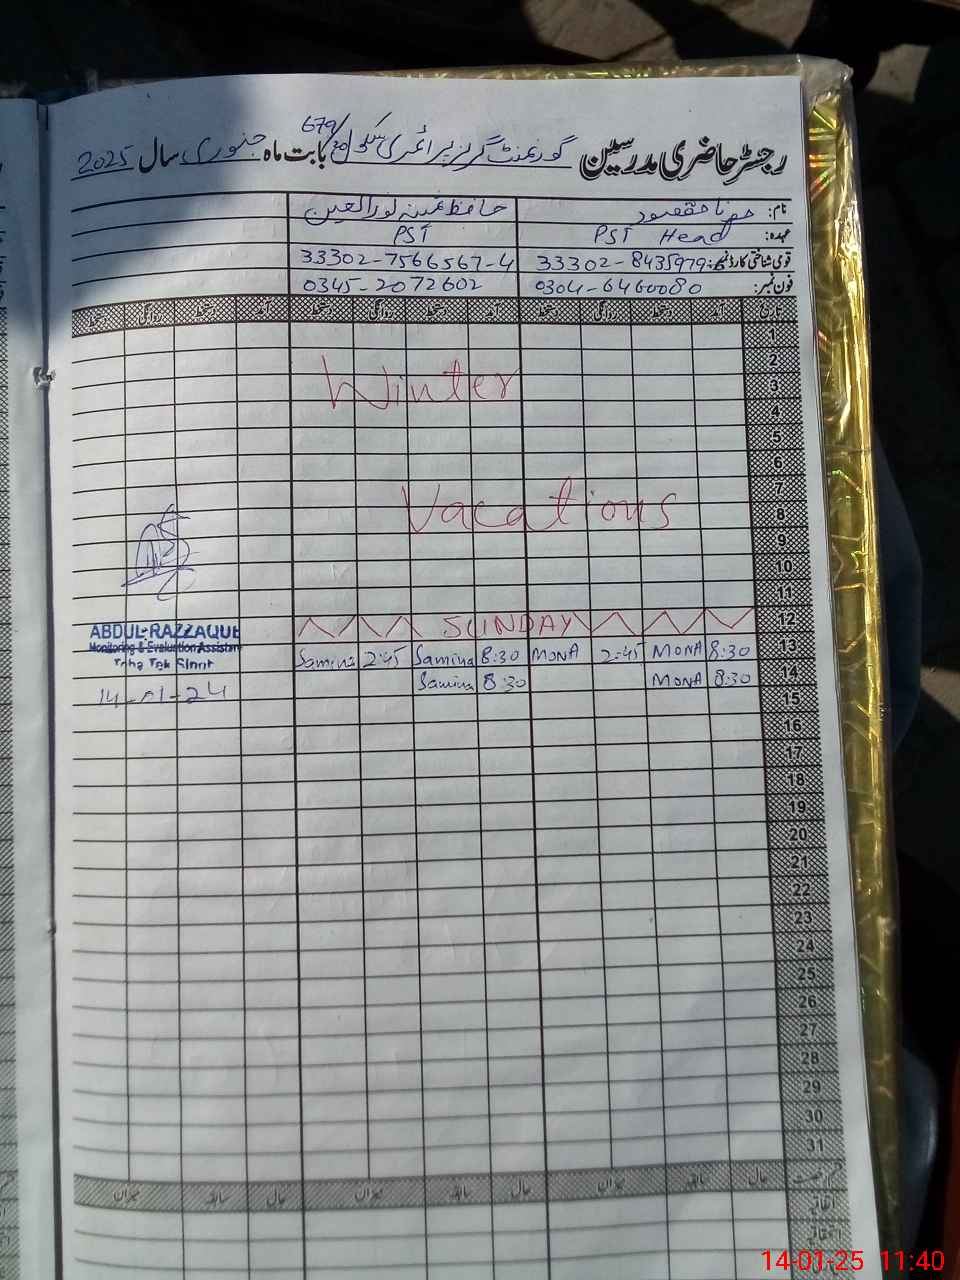 رجسٹر حاضری مدرسین گورنمنٹ گرلز پرائمری سکول 679/20 بابت ماہ جنوری سال 2025
نام: حافظہ ثمینہ نورالعین
عہدہ: PST Head PST
قومی شناختی کارڈ نمبر: 33302-8435979 33302-7566567-4
فون نمبر: 0304-6460080 0345-2072602
تاریخ آمد دستخط روانگی دستخط آمد دستخط روانگی دستخط آمد دستخط روانگی دستخط
1
2
Winter 3
4
5
6
7
Vacations 8
9
10
11
SUNDAY 12
ABDUL-RAZZAQUE
Monitoring & Evaluation Assistant
Samina 2:45 Samina 8:30 MONA 2:45 MONA 8:30 13
Samina 8:30 MONA 8:30 14
14-01-24
15
16
17
18
19
20
21
22
23
24
25
26
27
28
29
30
31
حال سابقہ میزان حال سابقہ میزان حال سابقہ میزان
14-01-25 11:40